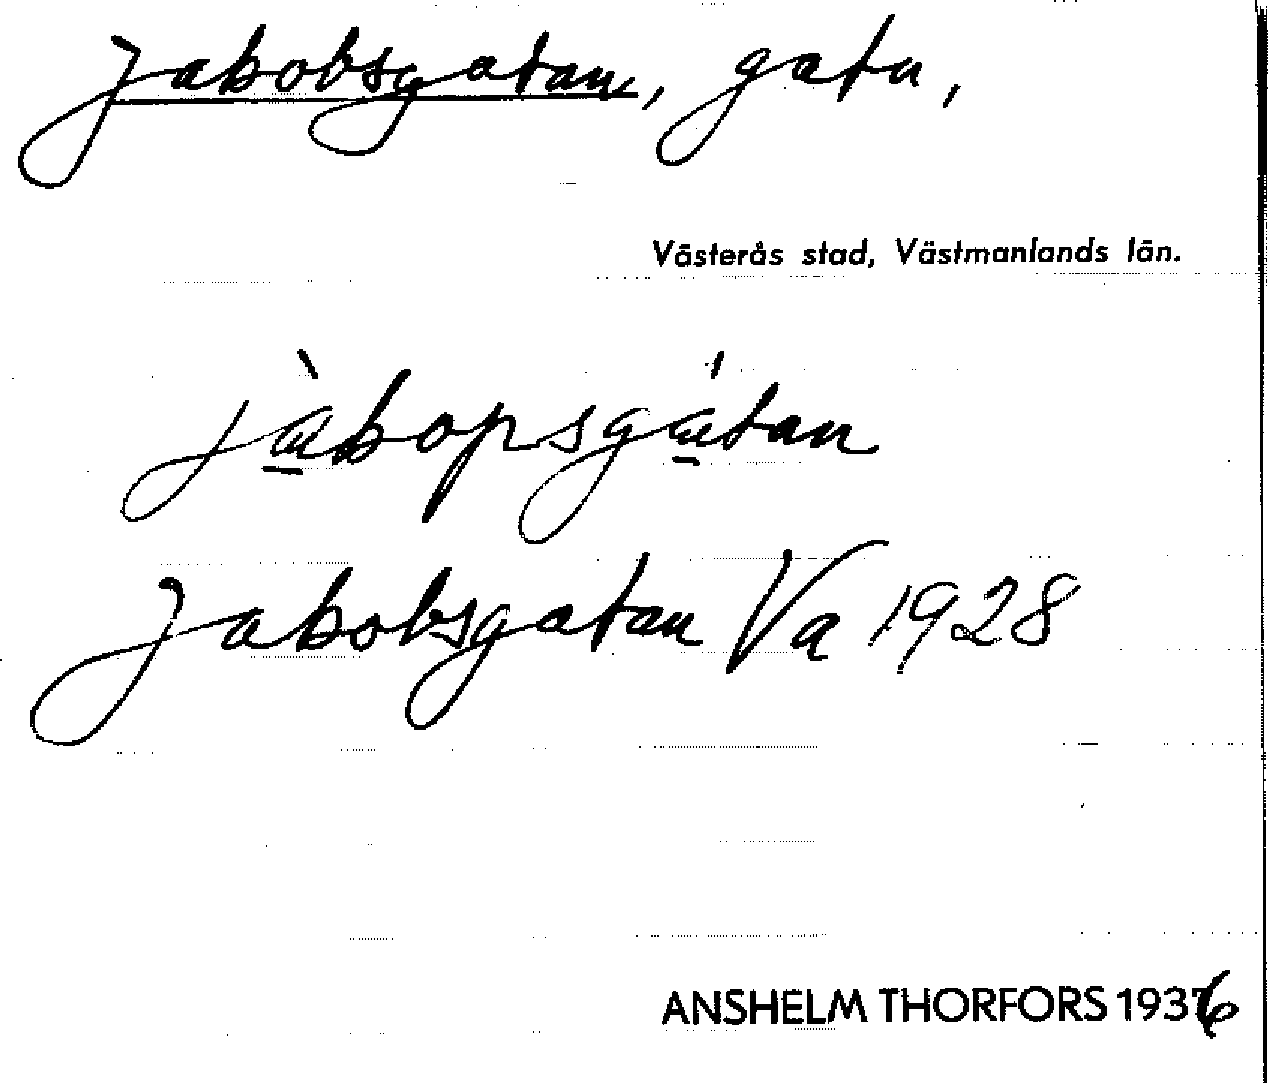 Jakobsgatan, gatu,
Västerås stad, Västmanlands län.
jàkopsgátan
Jakobsgatan Va 1928
ANSHELM THORFORS 1936